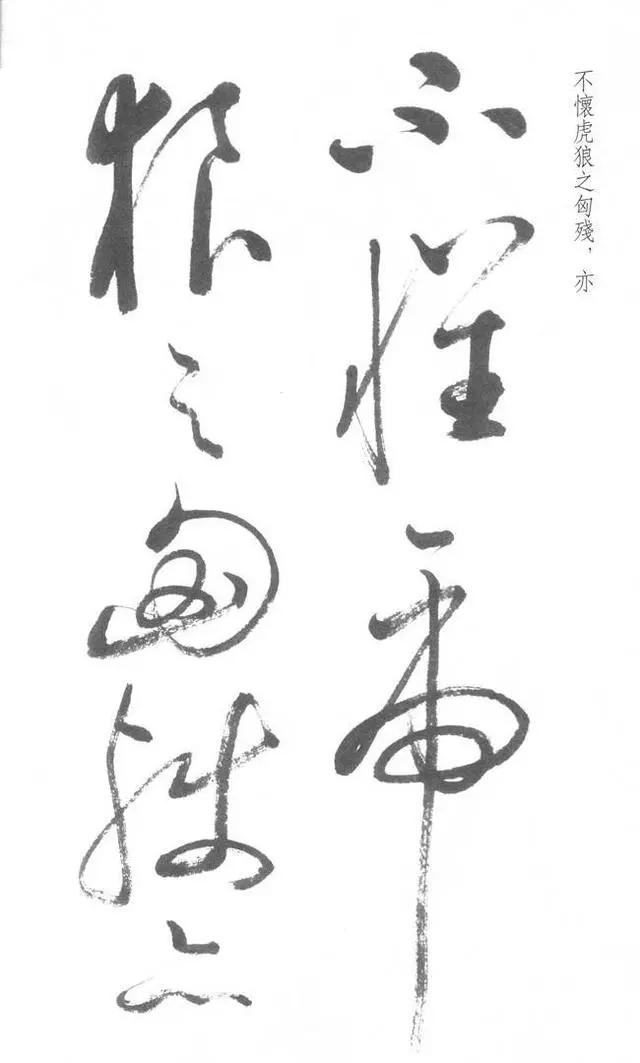 不懷虎狼之匈殘，亦
不懷虎
狼之匈殘亦